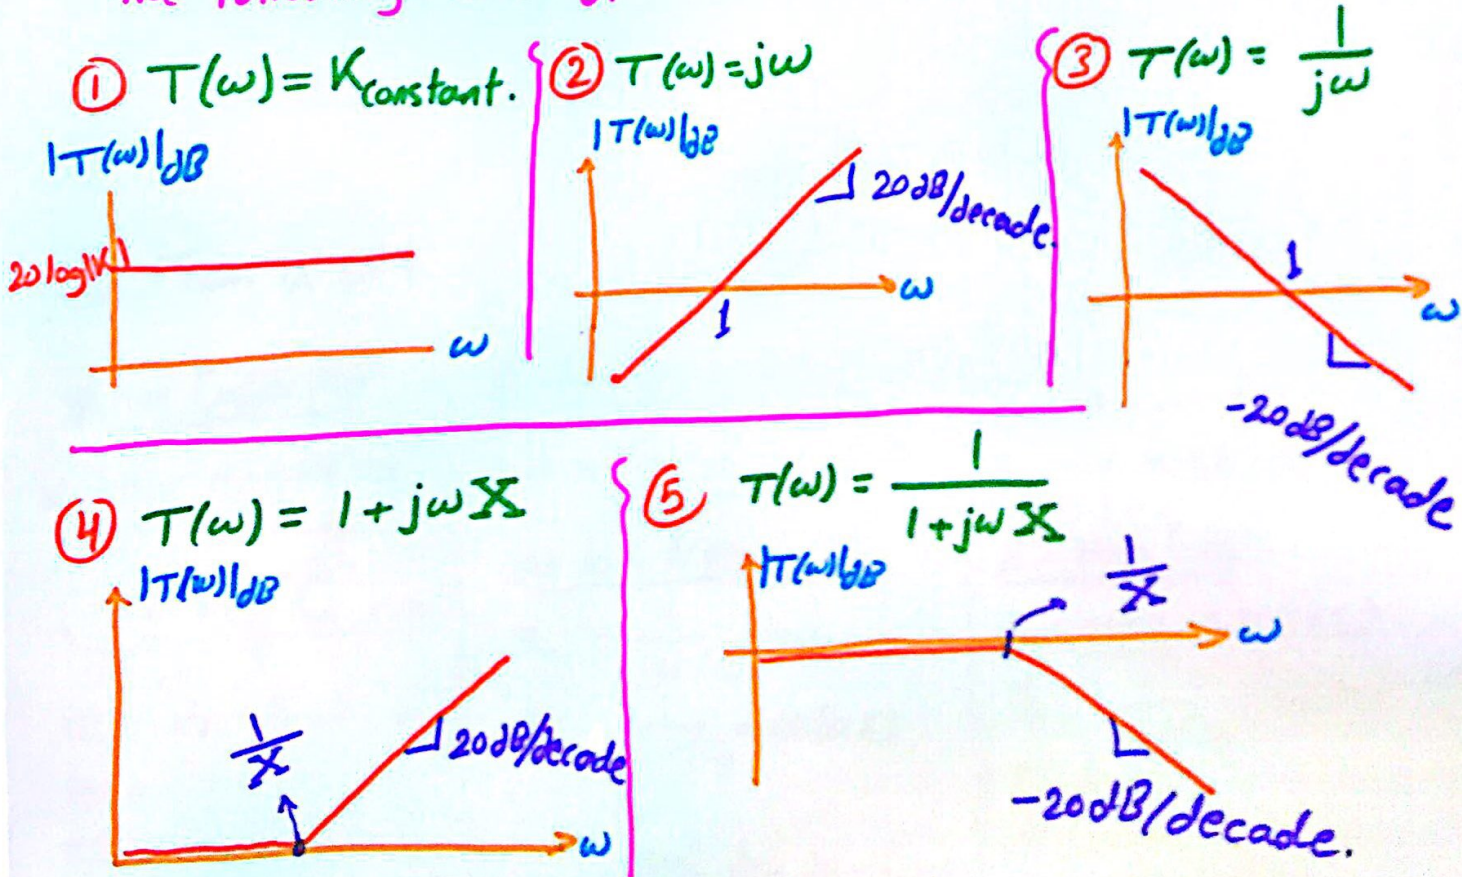 ① T(ω) = K constant.
|T(ω)|dB
20log|K|
ω
② T(ω) = jω
|T(ω)|dB
20dB/decade.
1
ω
③ T(ω) = 1/jω
|T(ω)|dB
1
ω
-20dB/decade
④ T(ω) = 1+jωX
|T(ω)|dB
1/X
20dB/decade
ω
⑤ T(ω) = 1/1+jωX
|T(ω)|dB
1/X
ω
-20dB/decade.